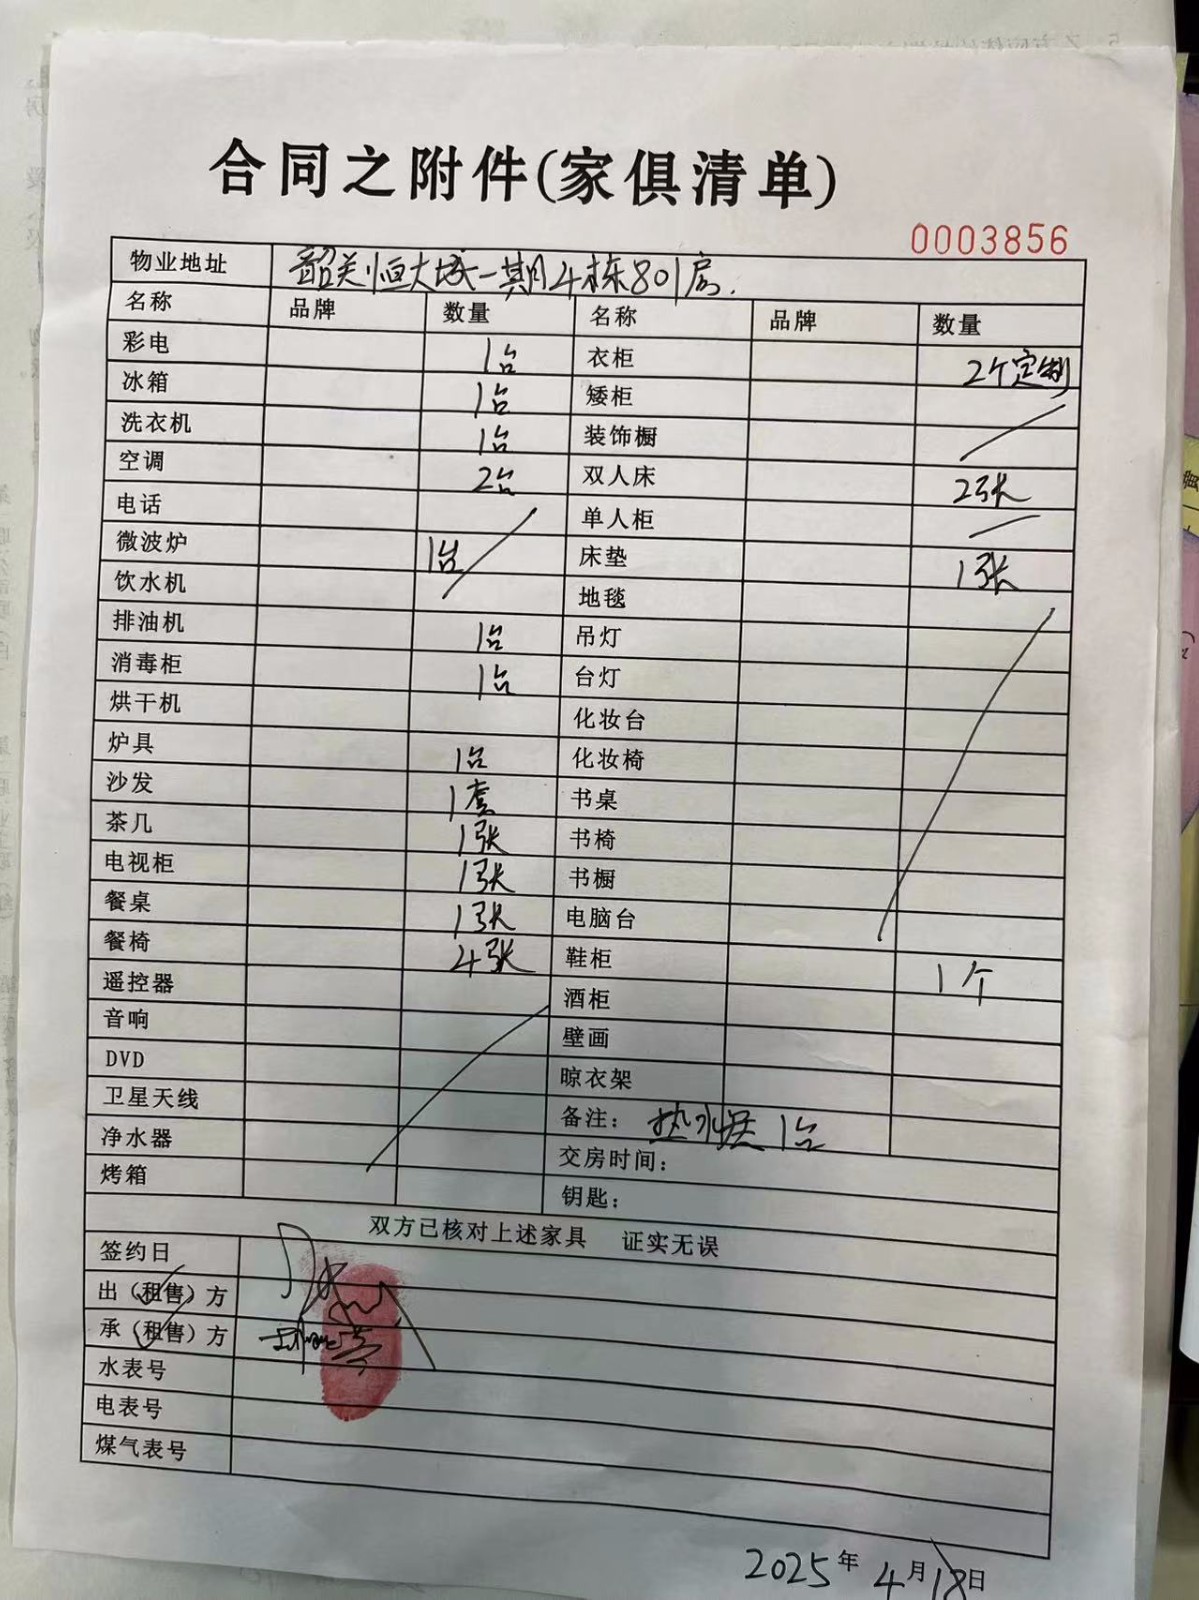 合同之附件(家俱清单)
0003856
物业地址 韶关恒大城一期4栋801房.
名称 品牌 数量 名称 品牌 数量
彩电 1台 衣柜 2个定制
冰箱 1台 矮柜
洗衣机 1台 装饰橱
空调 2台 双人床 2张
电话 单人柜
微波炉 1台 床垫 1张
饮水机 地毯
排油机 1台 吊灯
消毒柜 1台 台灯
烘干机 化妆台
炉具 1台 化妆椅
沙发 1套 书桌
茶几 1张 书椅
电视柜 1张 书橱
餐桌 1张 电脑台
餐椅 4张 鞋柜 1个
遥控器 酒柜
音响 壁画
DVD 晾衣架
卫星天线 备注: 热水器 1台
净水器 交房时间:
烤箱 钥匙:
双方已核对上述家具 证实无误
签约日
出(租售)方
承(租售)方
水表号
电表号
煤气表号
2025年4月18日